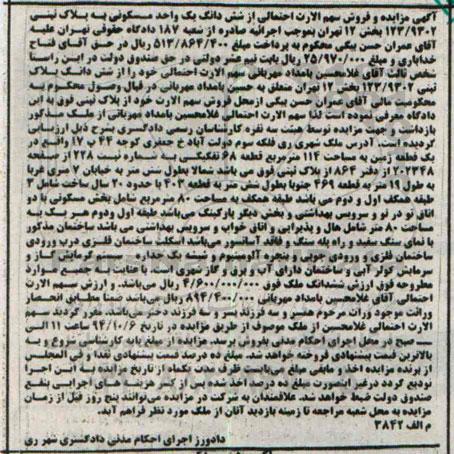 آگهی مزایده و فروش سهم الارث احتمالی از شش دانگ یک واحد مسکونی به پلاک ثبتی
۱۲۳/۹۳۰۲ بخش ۱۲ تهران بموجب اجرائیه صادره از شعبه ۱۸۷ دادگاه حقوقی تهران علیه
آقای عمران حسن بیگی محکوم به پرداخت مبلغ ۵۱۳/۸۶۳/۴۰۰ ریال در حق آقای فتاح
خدایاری و مبلغ ۲۵/۹۷۰/۰۰۰ ریال بابت نیم عشر دولتی در حق صندوق دولت در این راستا
شخص ثالث آقای غلامحسین بامداد مهربانی سهم الارث احتمالی خود را از شش دانگ پلاک
ثبتی ۱۲۳/۹۳۰۲ بخش ۱۲ تهران متعلق به حسین بامداد مهربانی در قبال وصول محکوم به
محکومیت مالی آقای عمران حسن بیگی ازمحل فروش سهم الارث خود از پلاک ثبتی فوق به این
دادگاه معرفی نموده است لذا سهم الارث احتمالی غلامحسین بامداد مهربانی از ملک مذکور
بازداشت و جهت مزایده توسط هیئت سه نفره کارشناسان رسمی دادگستری بشرح ذیل ارزیابی
گردیده است. آدرس ملک شهرری فلکه سوم دولت آباد خ جعفری کوچه ۴۴ پ ۱۷ واقع در
یک قطعه زمین به مساحت ۱۱۴ مترمربع قطعه ۶۸ تفکیکی به شماره ثبت ۲۲۸ از صفحه
۲۰۲۳۴۸ از دفتر ۸۶۴ از پلاک ثبتی فوق می باشد شمالا بطول شش متر به خیابان ۷ متری غربا
به طول ۱۹ متر به قطعه ۴۶۹ جنوبا بطول شش متر به قطعه ۴۰۳ با حدود ۲۰ سال ساخت شامل ۳
طبقه همکف اول و دوم می باشد طبقه همکف به مساحت ۸۰ مترمربع شامل بخش مسکونی با دو
اتاق تو در تو و سرویس بهداشتی و بخش دیگر پارکینگ می باشد طبقه اول و دوم هر یک به
مساحت ۸۰ متر شامل هال و پذیرایی و اتاق خواب و سرویس بهداشتی می باشد ساختمان مذکور
با نمای سنگ سفید و راه پله سنگ و فاقد آسانسور می باشد اسکلت ساختمان فلزی درب ورودی
ساختمان فلزی و ورودی چوبی و پنجره آلومینیوم و شیشه یک جداره سیستم گرمایش گاز و
سرمایش کولر آبی و ساختمان دارای آب و برق و گاز شهری است. با عنایت به جمیع موارد
مطروحه فوق ارزش ششدانگ ملک فوق ۴/۶۰۰/۰۰۰/۰۰۰ ریال می باشد. و ارزش سهم الارث
احتمالی آقای غلامحسین بامداد مهربانی ۸۹۴/۴۰۰/۰۰۰ ریال می باشد ضمنا مطابق انحصار
وراثت موجود وراث مرحوم همسر و سه فرزند پسر و سه فرزند دختر می باشد. مقرر گردید سهم
الارث احتمالی غلامحسن از ملک موصوف از طریق مزایده در تاریخ ۹۴/۱۰/۶ ساعت ۱۱ الی
صبح در محل اجرای احکام مدنی بفروش برسد. مزایده از مبلغ پایه کارشناسی شروع و به
بالاترین قیمت پیشنهادی فروخته خواهد شد. مبلغ ده درصد قیمت پیشنهادی نقدا و فی المجلس
از برنده مزایده اخذ و مابقی مبلغ می بایست ظرف مدت یکماه از تاریخ مزایده به این اجرا
تودیع گردد درغیر اینصورت مبلغ ده درصد اخذ شده پس از کسر هزینه های اجرایی بنفع
صندوق دولت ضبط خواهد شد. علاقمندان به شرکت در مزایده می توانند پنج روز قبل از زمان
مزایده به محل شعبه مراجعه تا زمینه بازدید آنان از ملک مورد نظر فراهم آید.
م الف ۳۸۴۲
دادورز اجرای احکام مدنی دادگستری شهر ری